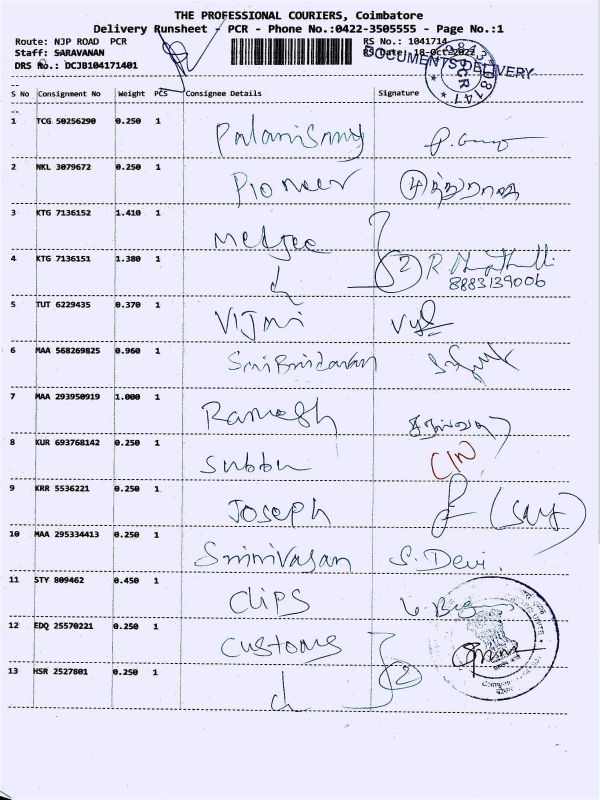 THE PROFESSIONAL COURIERS, Coimbatore
Delivery Runsheet - PCR - Phone No.:0422-3505555 - Page No.:1
Route: NJP ROAD PCR
RS No.: 1041714
Staff: SARAVANAN
RS Date: 18-Oct-2022
DRS No.: DCJB104171401
DOCUMENTS DELIVERY
S No Consignment No Weight PCS Consignee Details Signature
1 TCG 50256290 0.250 1 Palanisamy
2 NKL 3079672 0.250 1 Pioneer
3 KTG 7136152 1.410 1 Medgee
4 KTG 7136151 1.380 1 2 R
8883139006
5 TUT 6229435 0.370 1
6 MAA 568269825 0.960 1
7 MAA 293950919 1.000 1 Ramesh
8 KUR 693768142 0.250 1 Subbu C/N
9 KRR 5536221 0.250 1 Joseph
10 MAA 295334413 0.250 1 Srinivasan S. Devi.
11 STY 809462 0.450 1 Clips
12 EDQ 25570221 0.250 1 Customs
13 HSR 2527801 0.250 1 2